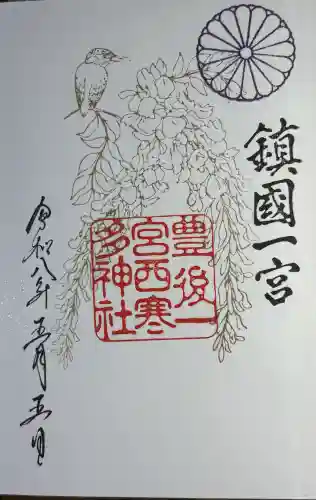 鎮國一宮
豊後一
宮西寒
多神社
令和八年五月五日